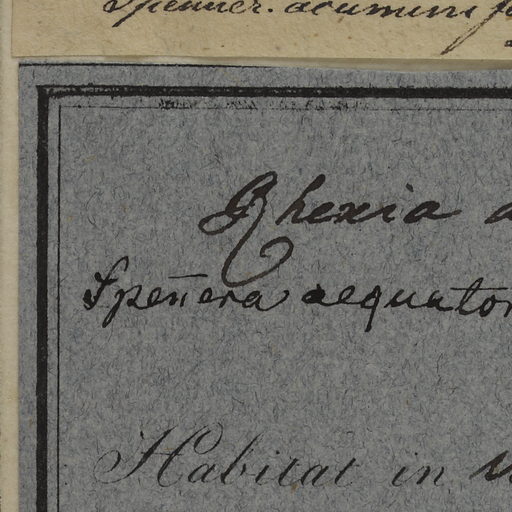 Spenner. acumini
Rhexia a
Speñera aequator
Habitat in